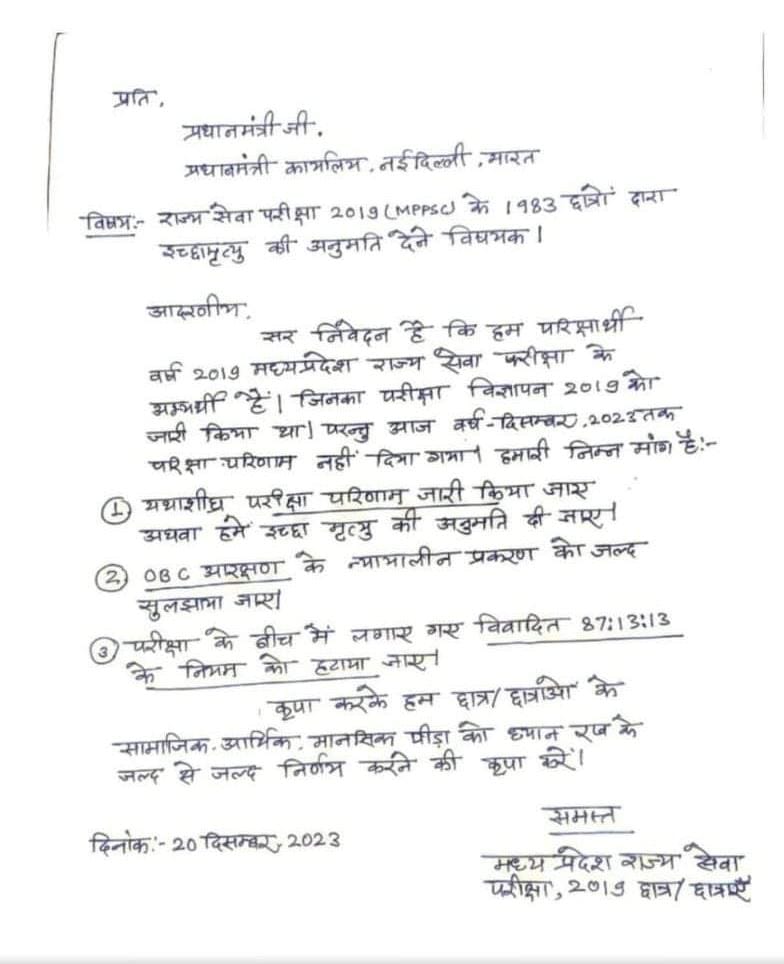 प्रति,
प्रधानमंत्री जी,
प्रधानमंत्री कार्यालय, नई दिल्ली, भारत
विषय:- राज्य सेवा परीक्षा 2019 (MPPSC) के 1983 छात्रों द्वारा
इच्छामृत्यु की अनुमति देने विषयक।
आदरणीय,
सर निवेदन है कि हम परिक्षार्थी
वर्ष 2019 मध्यप्रदेश राज्य सेवा परीक्षा के
अभ्यर्थी हैं। जिनका परीक्षा विज्ञापन 2019 को
जारी किया था। परन्तु आज वर्ष-दिसम्बर, 2023 तक
परिक्षा परिणाम नहीं दिया गया। हमारी निम्न मांग है:-
① यथाशीघ्र परीक्षा परिणाम जारी किया जाए
अथवा हमें इच्छा मृत्यु की अनुमति दी जाए।
② OBC आरक्षण के न्यायालीन प्रकरण को जल्द
सुलझाया जाए।
③ परीक्षा के बीच में लगाए गए विवादित 87:13:13
के नियम को हटाया जाए।
कृपा करके हम छात्र/छात्राओं के
सामाजिक, आर्थिक, मानसिक पीड़ा को ध्यान रख के
जल्द से जल्द निर्णय करने की कृपा करें।
समस्त
दिनांक:- 20 दिसम्बर, 2023
मध्य प्रदेश राज्य सेवा
परीक्षा, 2019 छात्र/छात्राएँ